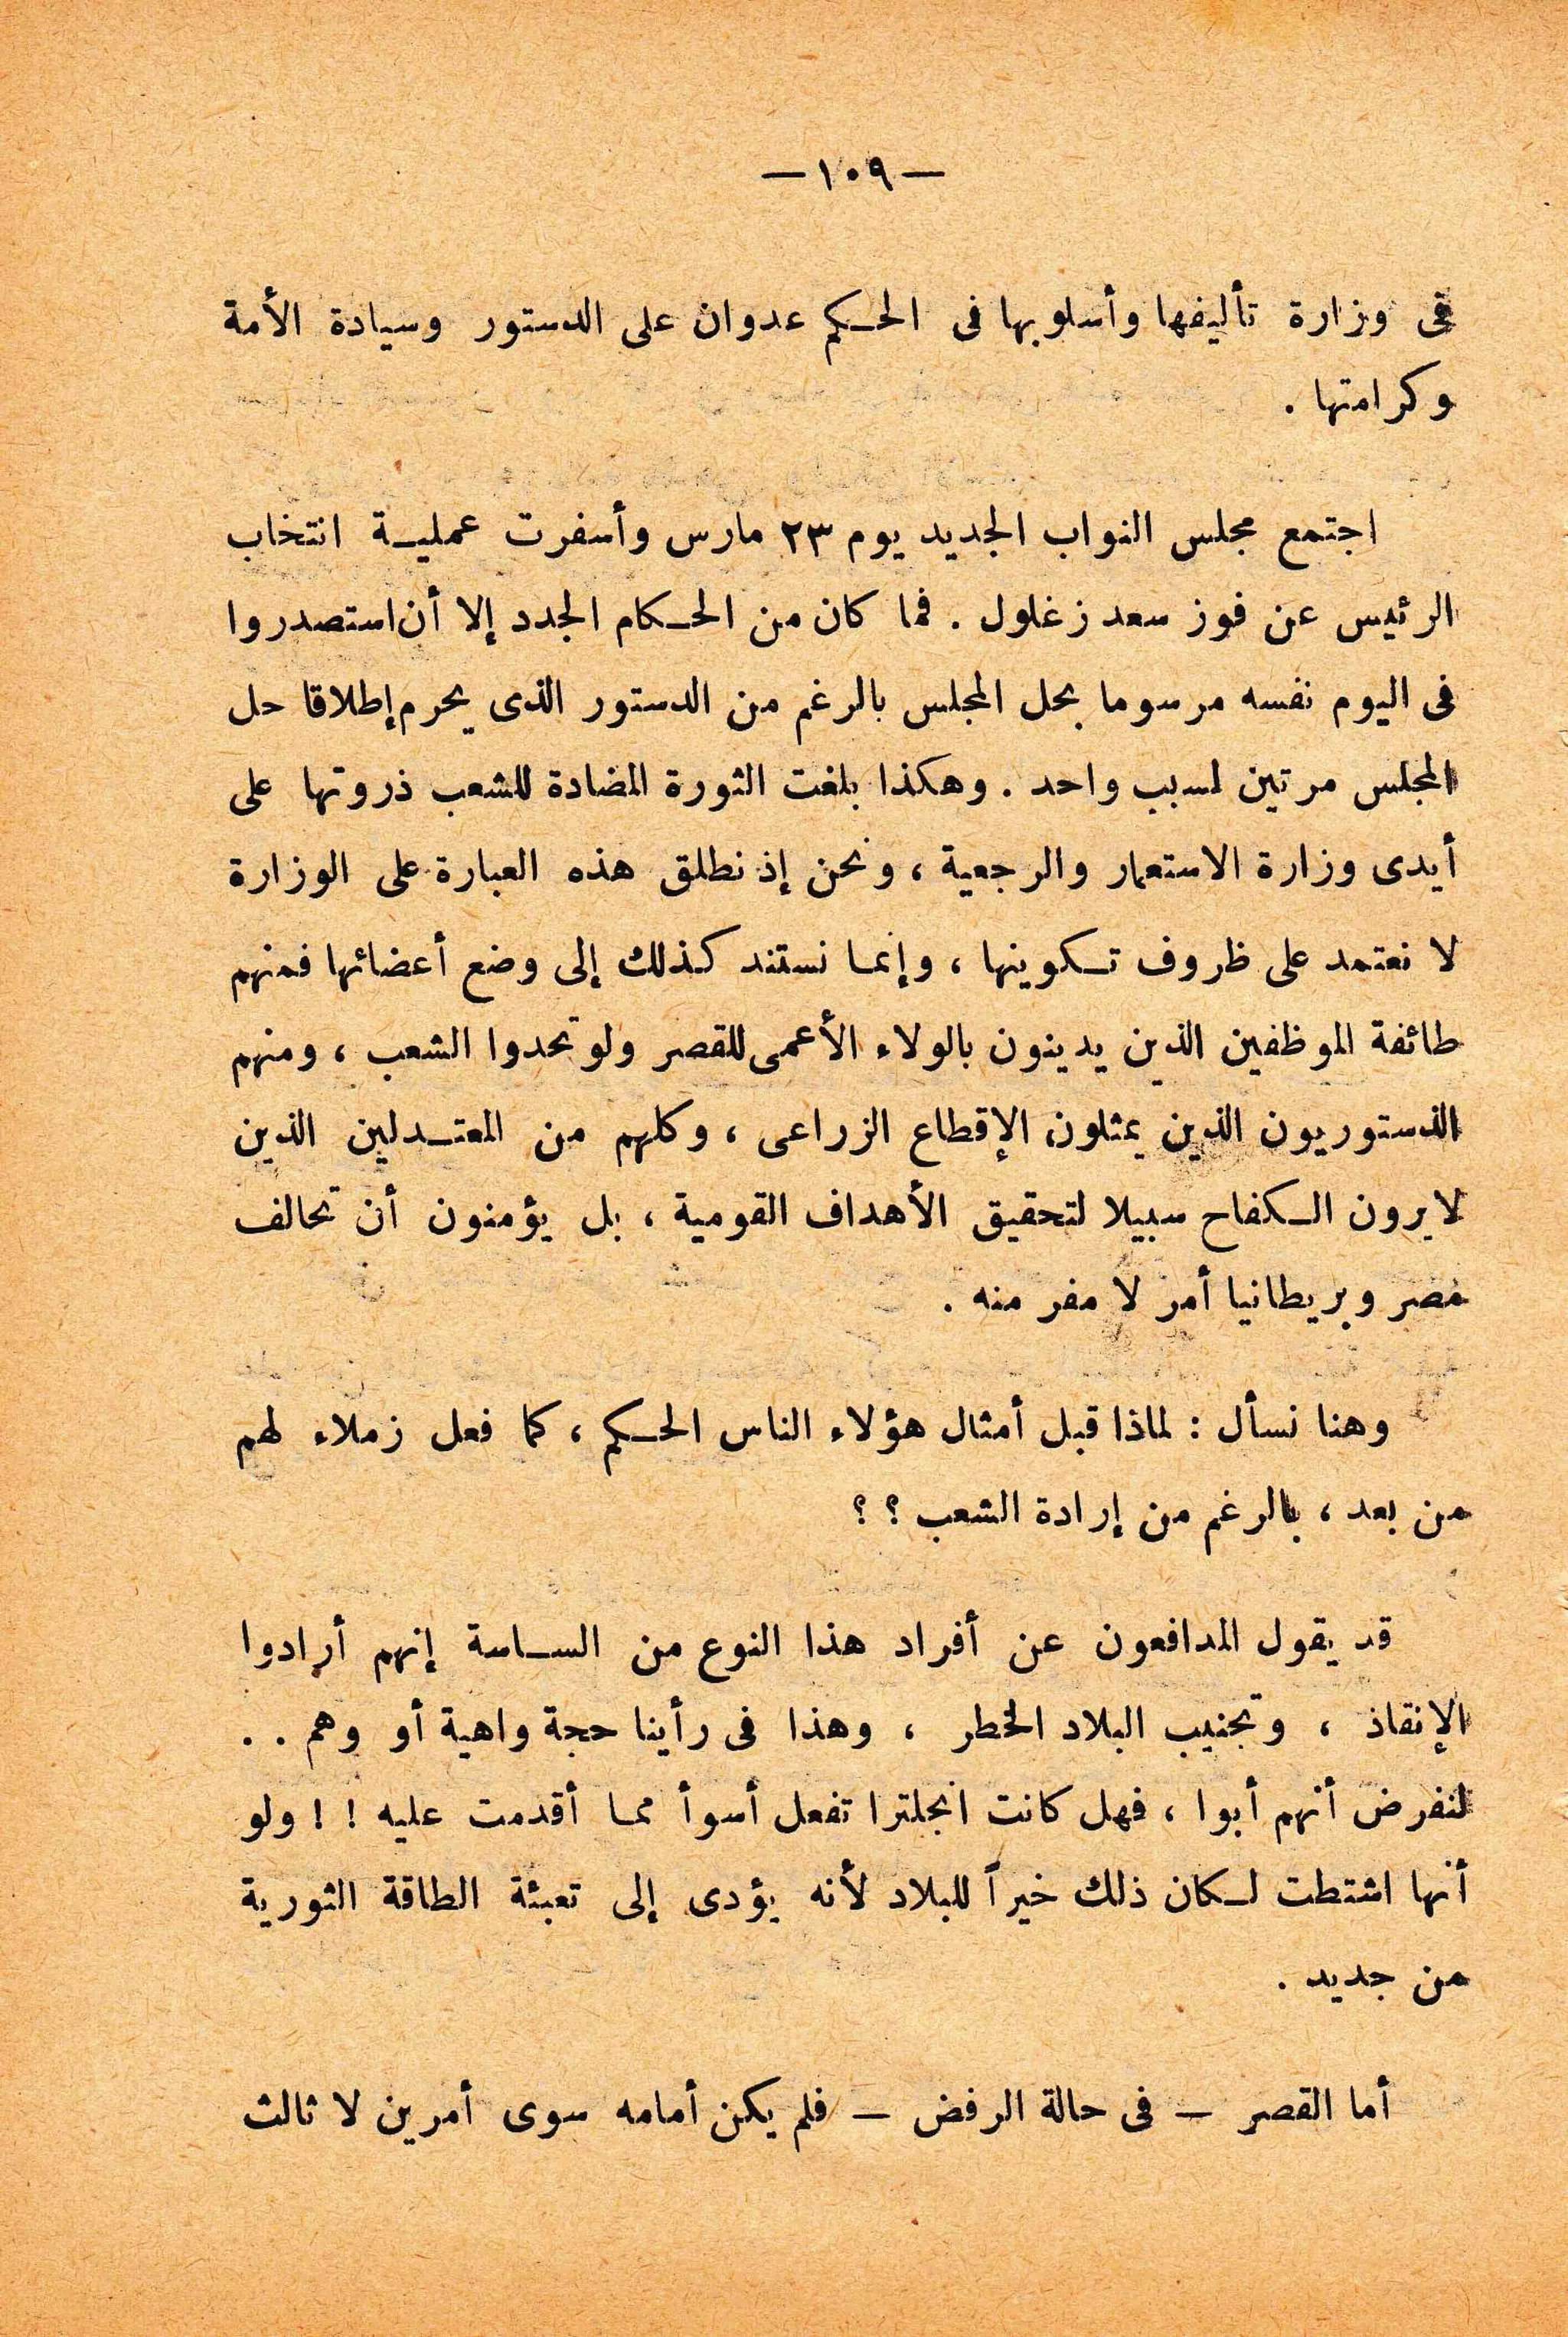 — ١٠٩ —
فى وزارة تأليفها وأسلوبها فى الحكم عدوان على الدستور وسيادة الأمة
وكرامتها .
اجتمع مجلس النواب الجديد يوم ٢٣ مارس وأسفرت عملية انتخاب
الرئيس عن فوز سعد زغلول . فما كان من الحكام الجدد إلا أن استصدروا
فى اليوم نفسه مرسوما بحل المجلس بالرغم من الدستور الذى يحرم إطلاقا حل
المجلس مرتين لسبب واحد . وهكذا بلغت الثورة المضادة للشعب ذروتها على
أيدى وزارة الاستعمار والرجعية ، ونحن إذ نطلق هذه العبارة على الوزارة
لا نعتمد على ظروف تكوينها ، وإنما نستند كذلك إلى وضع أعضائها فمنهم
طائفة الموظفين الذين يدينون بالولاء الأعمى للقصر ولو تحدوا الشعب ، ومنهم
الدستوريون الذين يمثلون الإقطاع الزراعى ، وكلهم من المعتدلين الذين
لا يرون الكفاح سبيلا لتحقيق الأهداف القومية ، بل يؤمنون أن تحالف
مصر وبريطانيا أمر لا مفر منه .
وهنا نسأل : لماذا قبل أمثال هؤلاء الناس الحكم ، كما فعل زملاء لهم
من بعد ، بالرغم من إرادة الشعب ؟ ؟
قد يقول المدافعون عن أفراد هذا النوع من الساسة إنهم أرادوا
الإنقاذ ، وتجنيب البلاد الخطر ، وهذا فى رأينا حجة واهية أو وهم . .
لنفرض أنهم أبوا ، فهل كانت انجلترا تفعل أسوأ مما أقدمت عليه ! ! ولو
أنها اشتطت لكان ذلك خيراً للبلاد لأنه يؤدى إلى تعبئة الطاقة الثورية
من جديد .
أما القصر — فى حالة الرفض — فلم يكن أمامه سوى أمرين لا ثالث